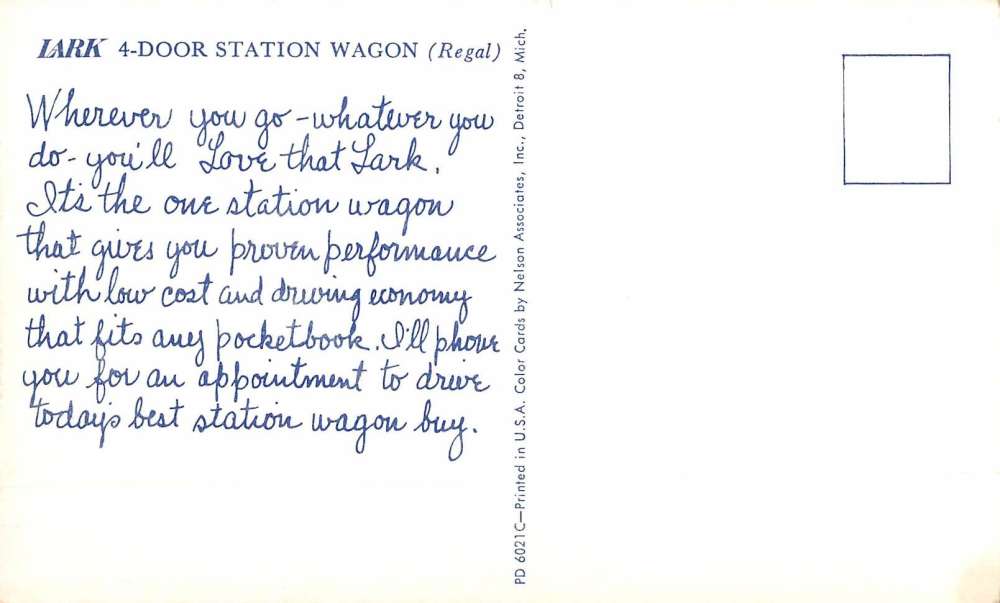 LARK 4-DOOR STATION WAGON (Regal)
Wherever you go - whatever you
do - you'll Love that Lark.
It's the one station wagon
that gives you proven performance
with low cost and driving economy
that fits any pocketbook. I'll phone
you for an appointment to drive
today's best station wagon buy.
PD 6021C—Printed in U.S.A. Color Cards by Nelson Associates, Inc., Detroit 8, Mich.